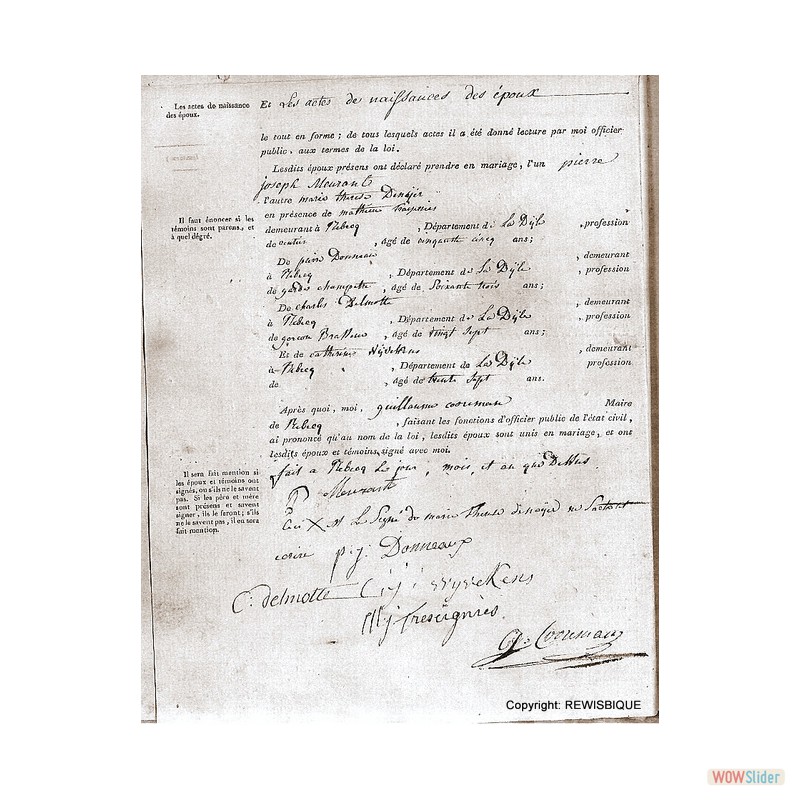 Les actes de naissance
des époux.
Et Les actes de naissances des époux
le tout en forme ; de tous lesquels actes il a été donné lecture par moi officier
public, aux termes de la loi.
Lesdits époux présens ont déclaré prendre en mariage, l'un pierre
joseph Meurant
l'autre marie therese
en présence de mathieu
Il faut énoncer si les
témoins sont parens, et
à quel dégré.
demeurant à Rebecq , Département de La Dÿle , profession
de , agé de cinquante cinq ans ;
De pierre Donneau , demeurant
à Rebecq , Département de La Dÿle , profession
de garde champette , agé de Soixante trois ans ;
De charles Delmotte , demeurant
à Rebecq , Département de La Dÿle , profession
de garcon Brasseur , agé de vingt Sept ans ;
Et de , demeurant
à Rebecq , Département de La Dÿle profession
de , agé de trente Sept ans.
Après quoi, moi, guillaume cooreman Maire
de Rebecq , faisant les fonctions d'officier public de l'état civil,
ai prononcé qu'au nom de la loi, lesdits époux sont unis en mariage, et ont
lesdits époux et témoins signé avec moi.
Il sera fait mention si
les époux et témoins ont
signés, ou s'ils ne le savent
pas. Si les père et mère
sont présens et savent
signer, ils le feront ; s'ils
ne le savent pas, il en sera
fait mention.
fait a Rebecq Le jour, mois, et an que Dessus
P Meurant
Ceci X est Le Signé de marie therese
ecrire p. j. Donneaux
C. delmotte
Cooreman
Copyright: REWISBIQUE
WOWSlider